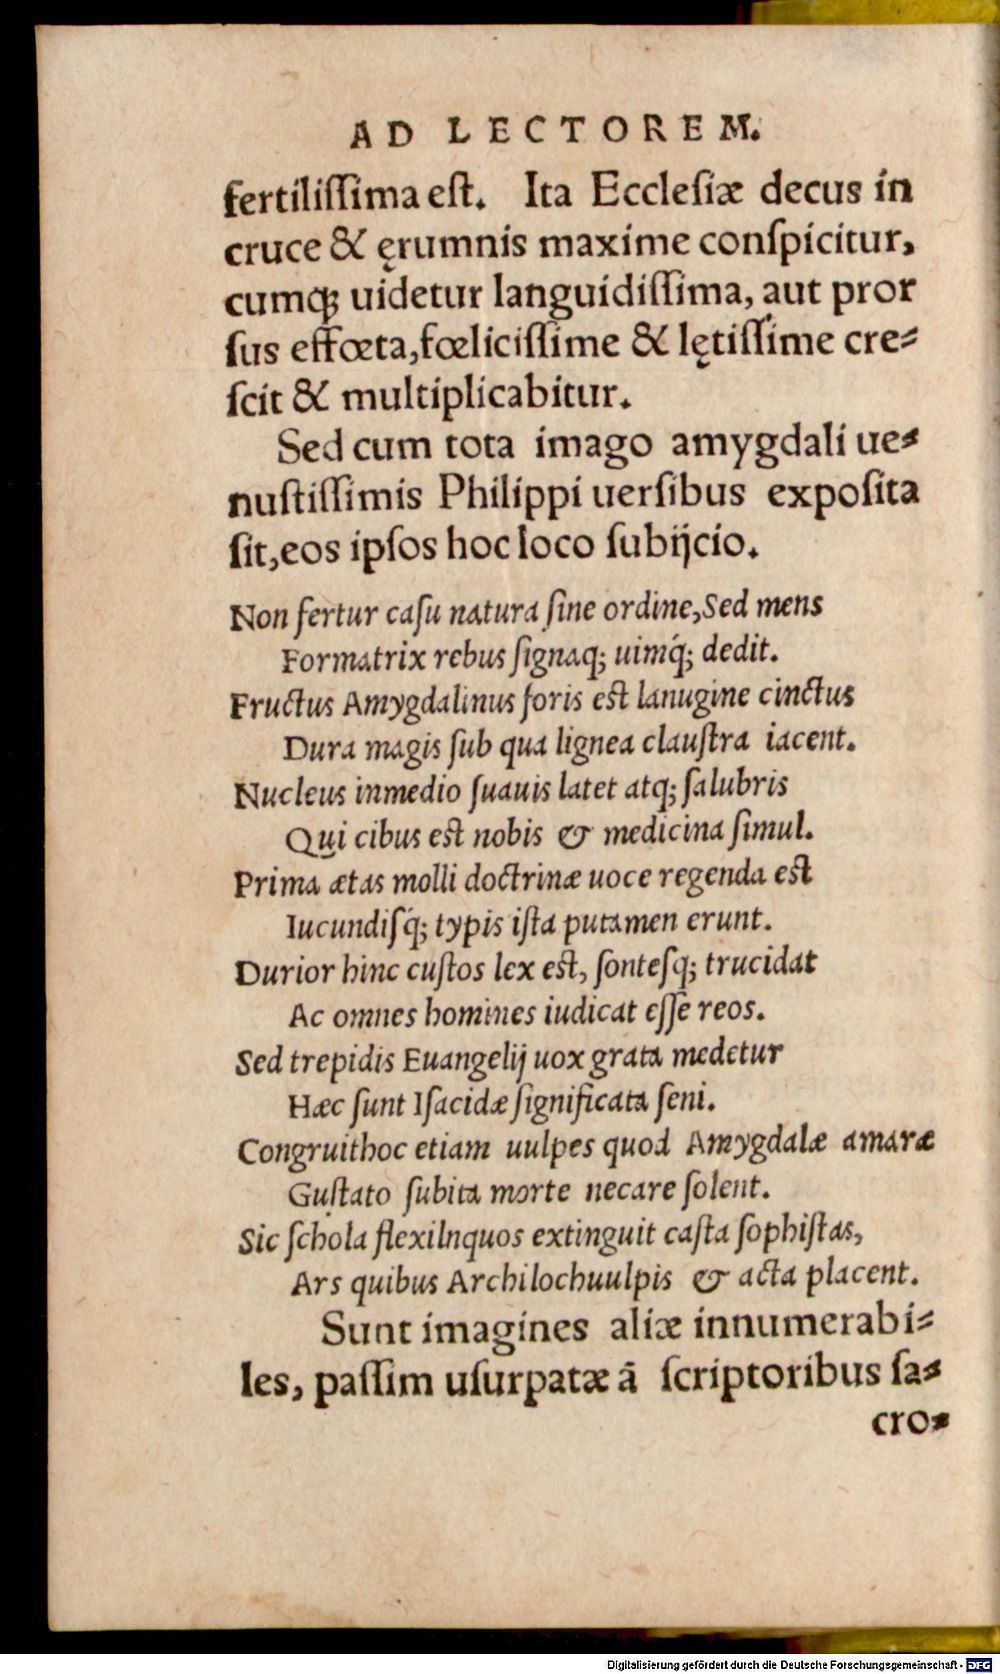 AD LECTOREM.
fertiliſſima eſt. Ita Eccleſiæ decus in
cruce & ęrumnis maxime conſpicitur,
cumq́; uidetur languidiſſima, aut pror
ſus effœta,fœliciſſime & lętiſſime cre-
ſcit & multiplicabitur.
Sed cum tota imago amygdali ue-
nuſtiſſimis Philippi uerſibus expoſita
ſit,eos ipſos hoc loco ſubijcio.
Non fertur caſu natura ſine ordine,Sed mens
Formatrix rebus ſignaq; uimq́; dedit.
Fructus Amygdalinus foris eſt lanugine cinctus
Dura magis ſub qua lignea clauſtra iacent.
Nucleus inmedio ſuauis latet atq; ſalubris
Qui cibus eſt nobis & medicina ſimul.
Prima ætas molli doctrinæ uoce regenda eſt
Iucundiſq́; typis iſta putamen erunt.
Durior hinc cuſtos lex eſt, ſonteſq; trucidat
Ac omnes homines iudicat eſſe reos.
Sed trepidis Euangelij uox grata medetur
Hæc ſunt Iſacidæ ſignificata ſeni.
Congruithoc etiam uulpes quod Amygdalæ amaræ
Guſtato ſubita morte necare ſolent.
Sic ſchola flexilnquos extinguit caſta ſophiſtas,
Ars quibus Archilochuulpis & acta placent.
Sunt imagines aliæ innumerabi-
les, paſſim uſurpatæ ā ſcriptoribus ſa-
cro-
Digitalisierung gefördert durch die Deutsche Forschungsgemeinschaft - DFG